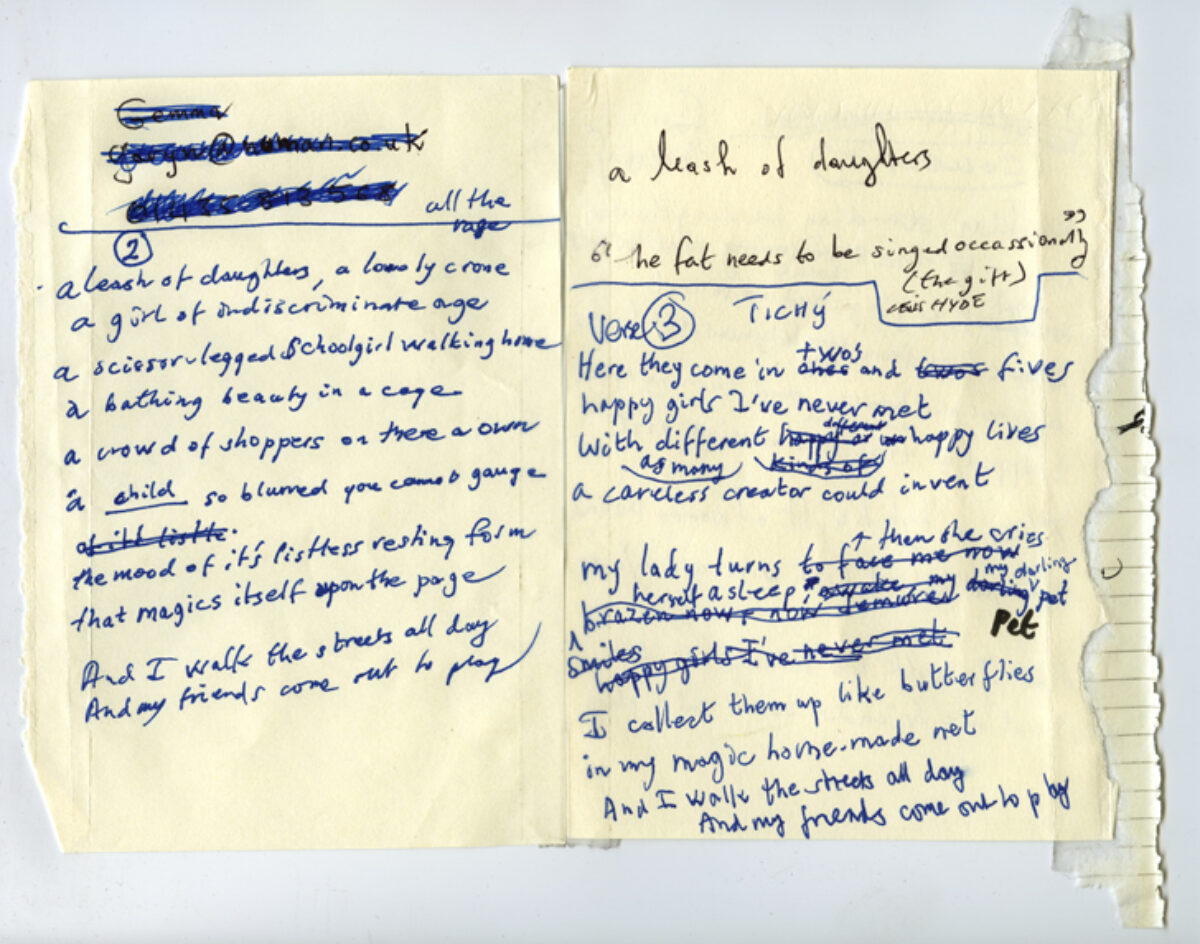 Gemma
all the
rage
2
a leash of daughters, a lonely crone
a girl of indiscriminate age
a scissor-legged schoolgirl walking home
a bathing beauty in a cage
a crowd of shoppers or there a own
a child so blurred you cannot gauge
the mood of it's listless resting form
that magics itself upon the page
And I walk the streets all day
And my friends come out to play
a leash of daughters
"he fat needs to be singed occassionally"
(the gift)
LEWIS HYDE
TICHÝ
Verse 3
Here they come in ones twos and twos fives
happy girls I've never met
With different happy or different happy lives
as many kinds of
a careless creator could invent
↑ then she cries
my lady turns to face me now
herself asleep, awake my darling my darling pet
brazen now, now demured
Pet
smiles
happy girls I've never met.
I collect them up like butterflies
in my magic home-made net
And I walk the streets all day
And my friends come out to play